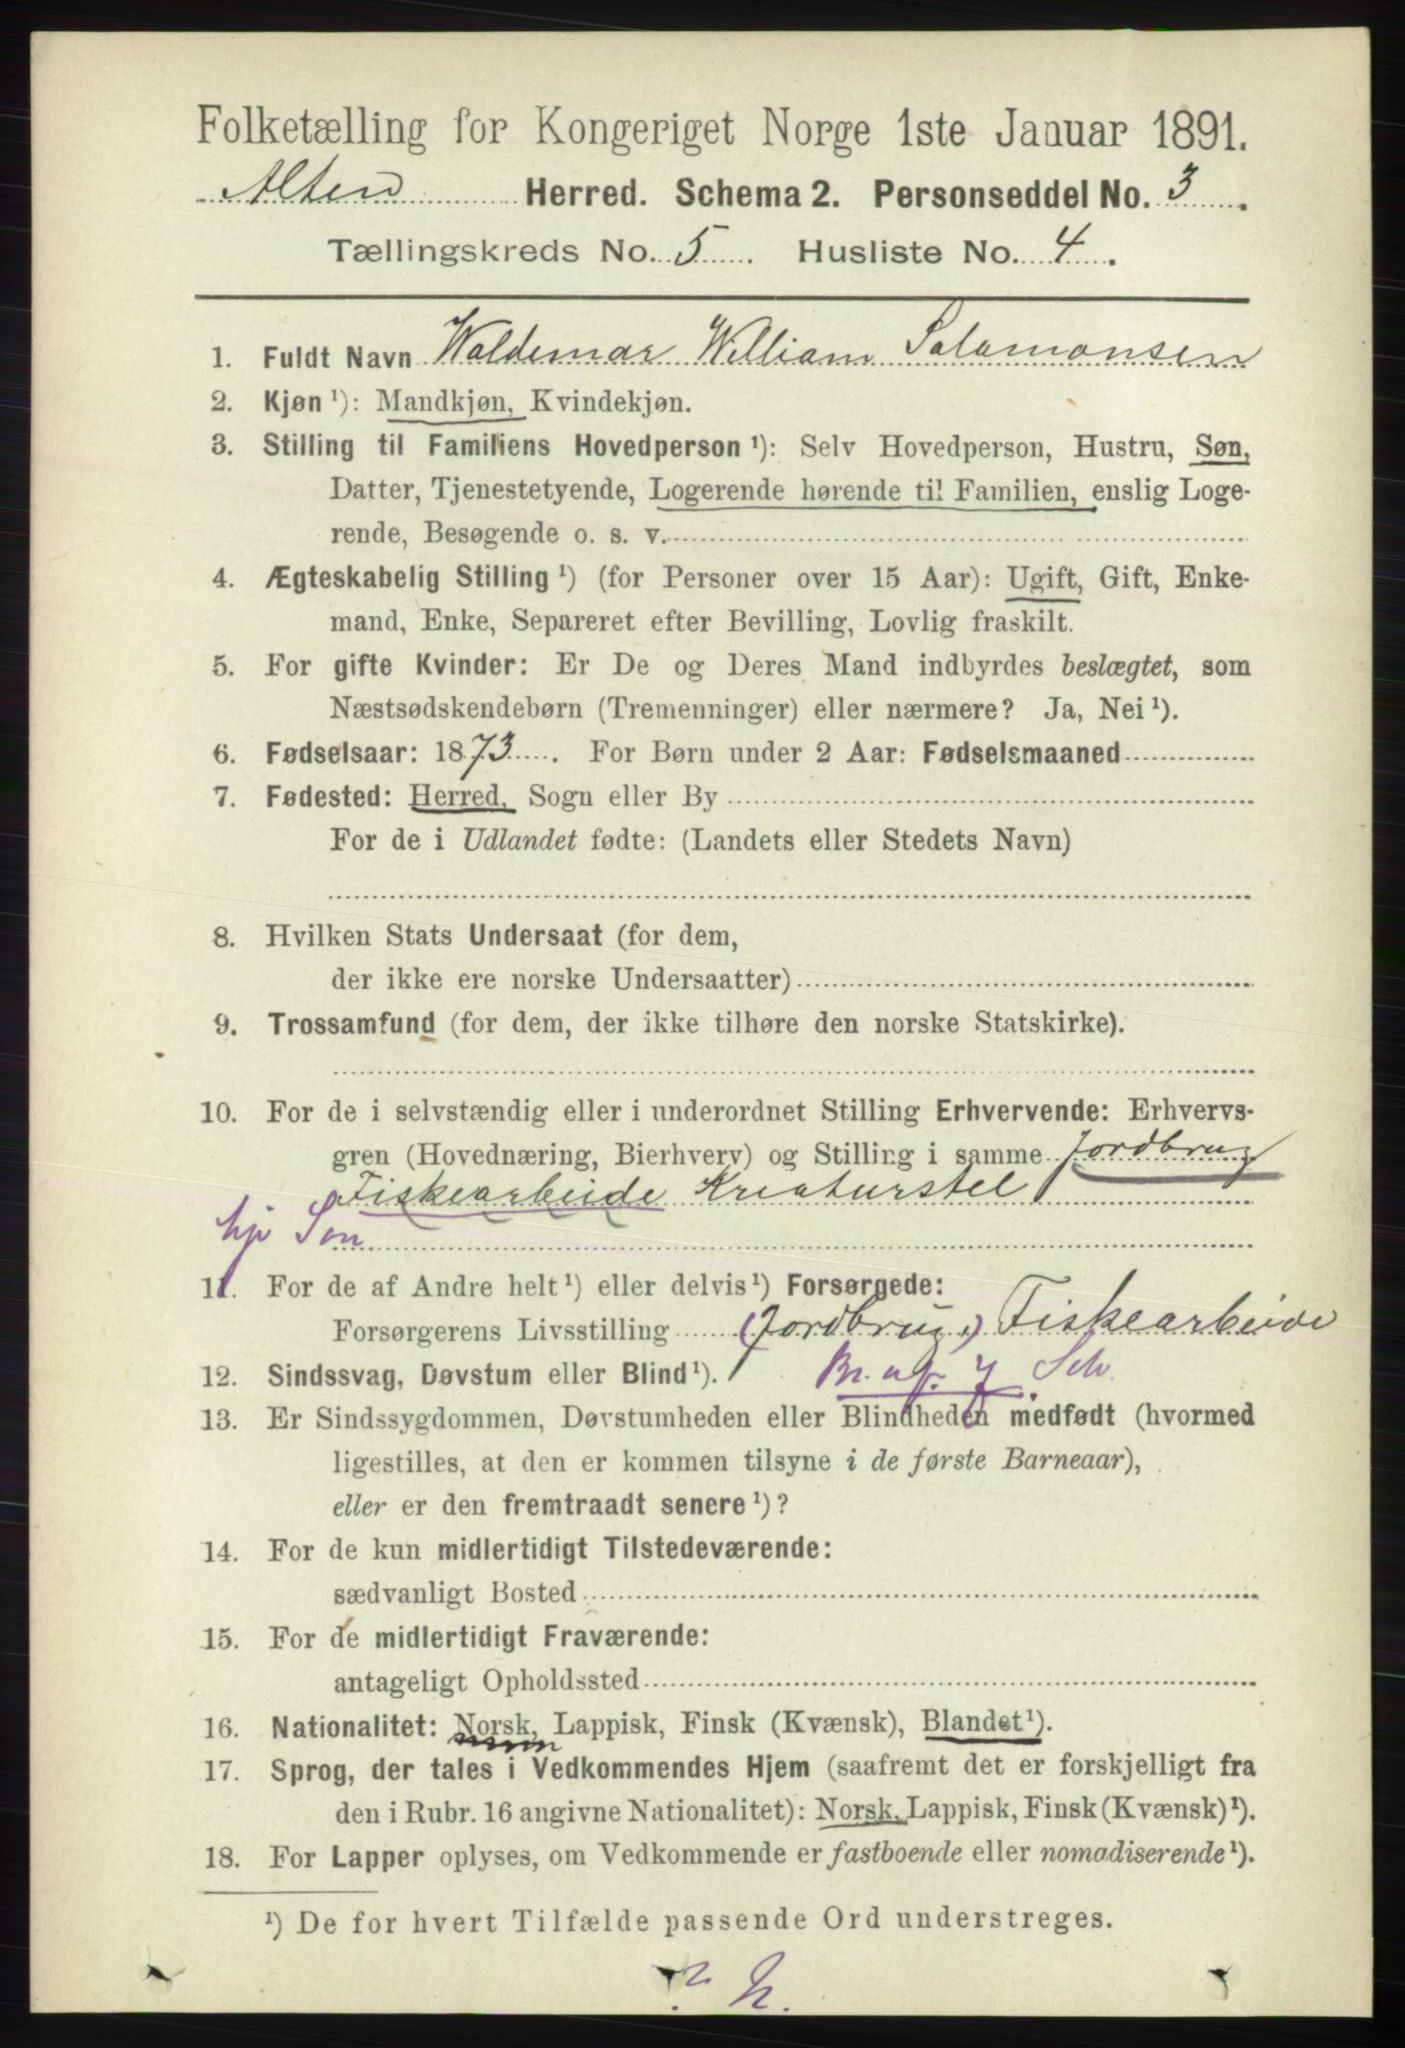 Folketælling for Kongeriget Norge 1ste Januar 1891.
Alten Herred. Schema 2. Personseddel No. 3.
Tællingskreds No. 5. Husliste No. 4.
1. Fuldt Navn Waldemar William Salamonsen
2. Kjøn ¹): Mandkjøn, Kvindekjøn.
3. Stilling til Familiens Hovedperson ¹): Selv Hovedperson, Hustru, Søn,
Datter, Tjenestetyende, Logerende hørende til Familien, enslig Loge-
rende, Besøgende o. s. v.
4. Ægteskabelig Stilling ¹) (for Personer over 15 Aar): Ugift, Gift, Enke-
mand, Enke, Separeret efter Bevilling, Lovlig fraskilt.
5. For gifte Kvinder: Er De og Deres Mand indbyrdes beslægtet, som
Næstsødskendebørn (Tremenninger) eller nærmere? Ja, Nei ¹).
6. Fødselsaar: 1873. For Børn under 2 Aar: Fødselsmaaned
7. Fødested: Herred, Sogn eller By
For de i Udlandet fødte: (Landets eller Stedets Navn)
8. Hvilken Stats Undersaat (for dem,
der ikke ere norske Undersaatter)
9. Trossamfund (for dem, der ikke tilhøre den norske Statskirke).
10. For de i selvstændig eller i underordnet Stilling Erhvervende: Erhvervs-
gren (Hovednæring, Bierhverv) og Stilling i samme Jordbrug
Fiskearbeide Kreaturstel
hjr Søn
11. For de af Andre helt ¹) eller delvis ¹) Forsørgede:
Forsørgerens Livsstilling (Jordbrug,) Fiskearbeide
12. Sindssvag, Døvstum eller Blind ¹).
13. Er Sindssygdommen, Døvstumheden eller Blindheden medfødt (hvormed
ligestilles, at den er kommen tilsyne i de første Barneaar),
eller er den fremtraadt senere ¹)?
14. For de kun midlertidigt Tilstedeværende:
sædvanligt Bosted
15. For de midlertidigt Fraværende:
antageligt Opholdssted
16. Nationalitet: Norsk, Lappisk, Finsk (Kvænsk), Blandet ¹).
17. Sprog, der tales i Vedkommendes Hjem (saafremt det er forskjelligt fra
den i Rubr. 16 angivne Nationalitet): Norsk, Lappisk, Finsk (Kvænsk) ¹).
18. For Lapper oplyses, om Vedkommende er fastboende eller nomadiserende ¹).
¹) De for hvert Tilfælde passende Ord understreges.